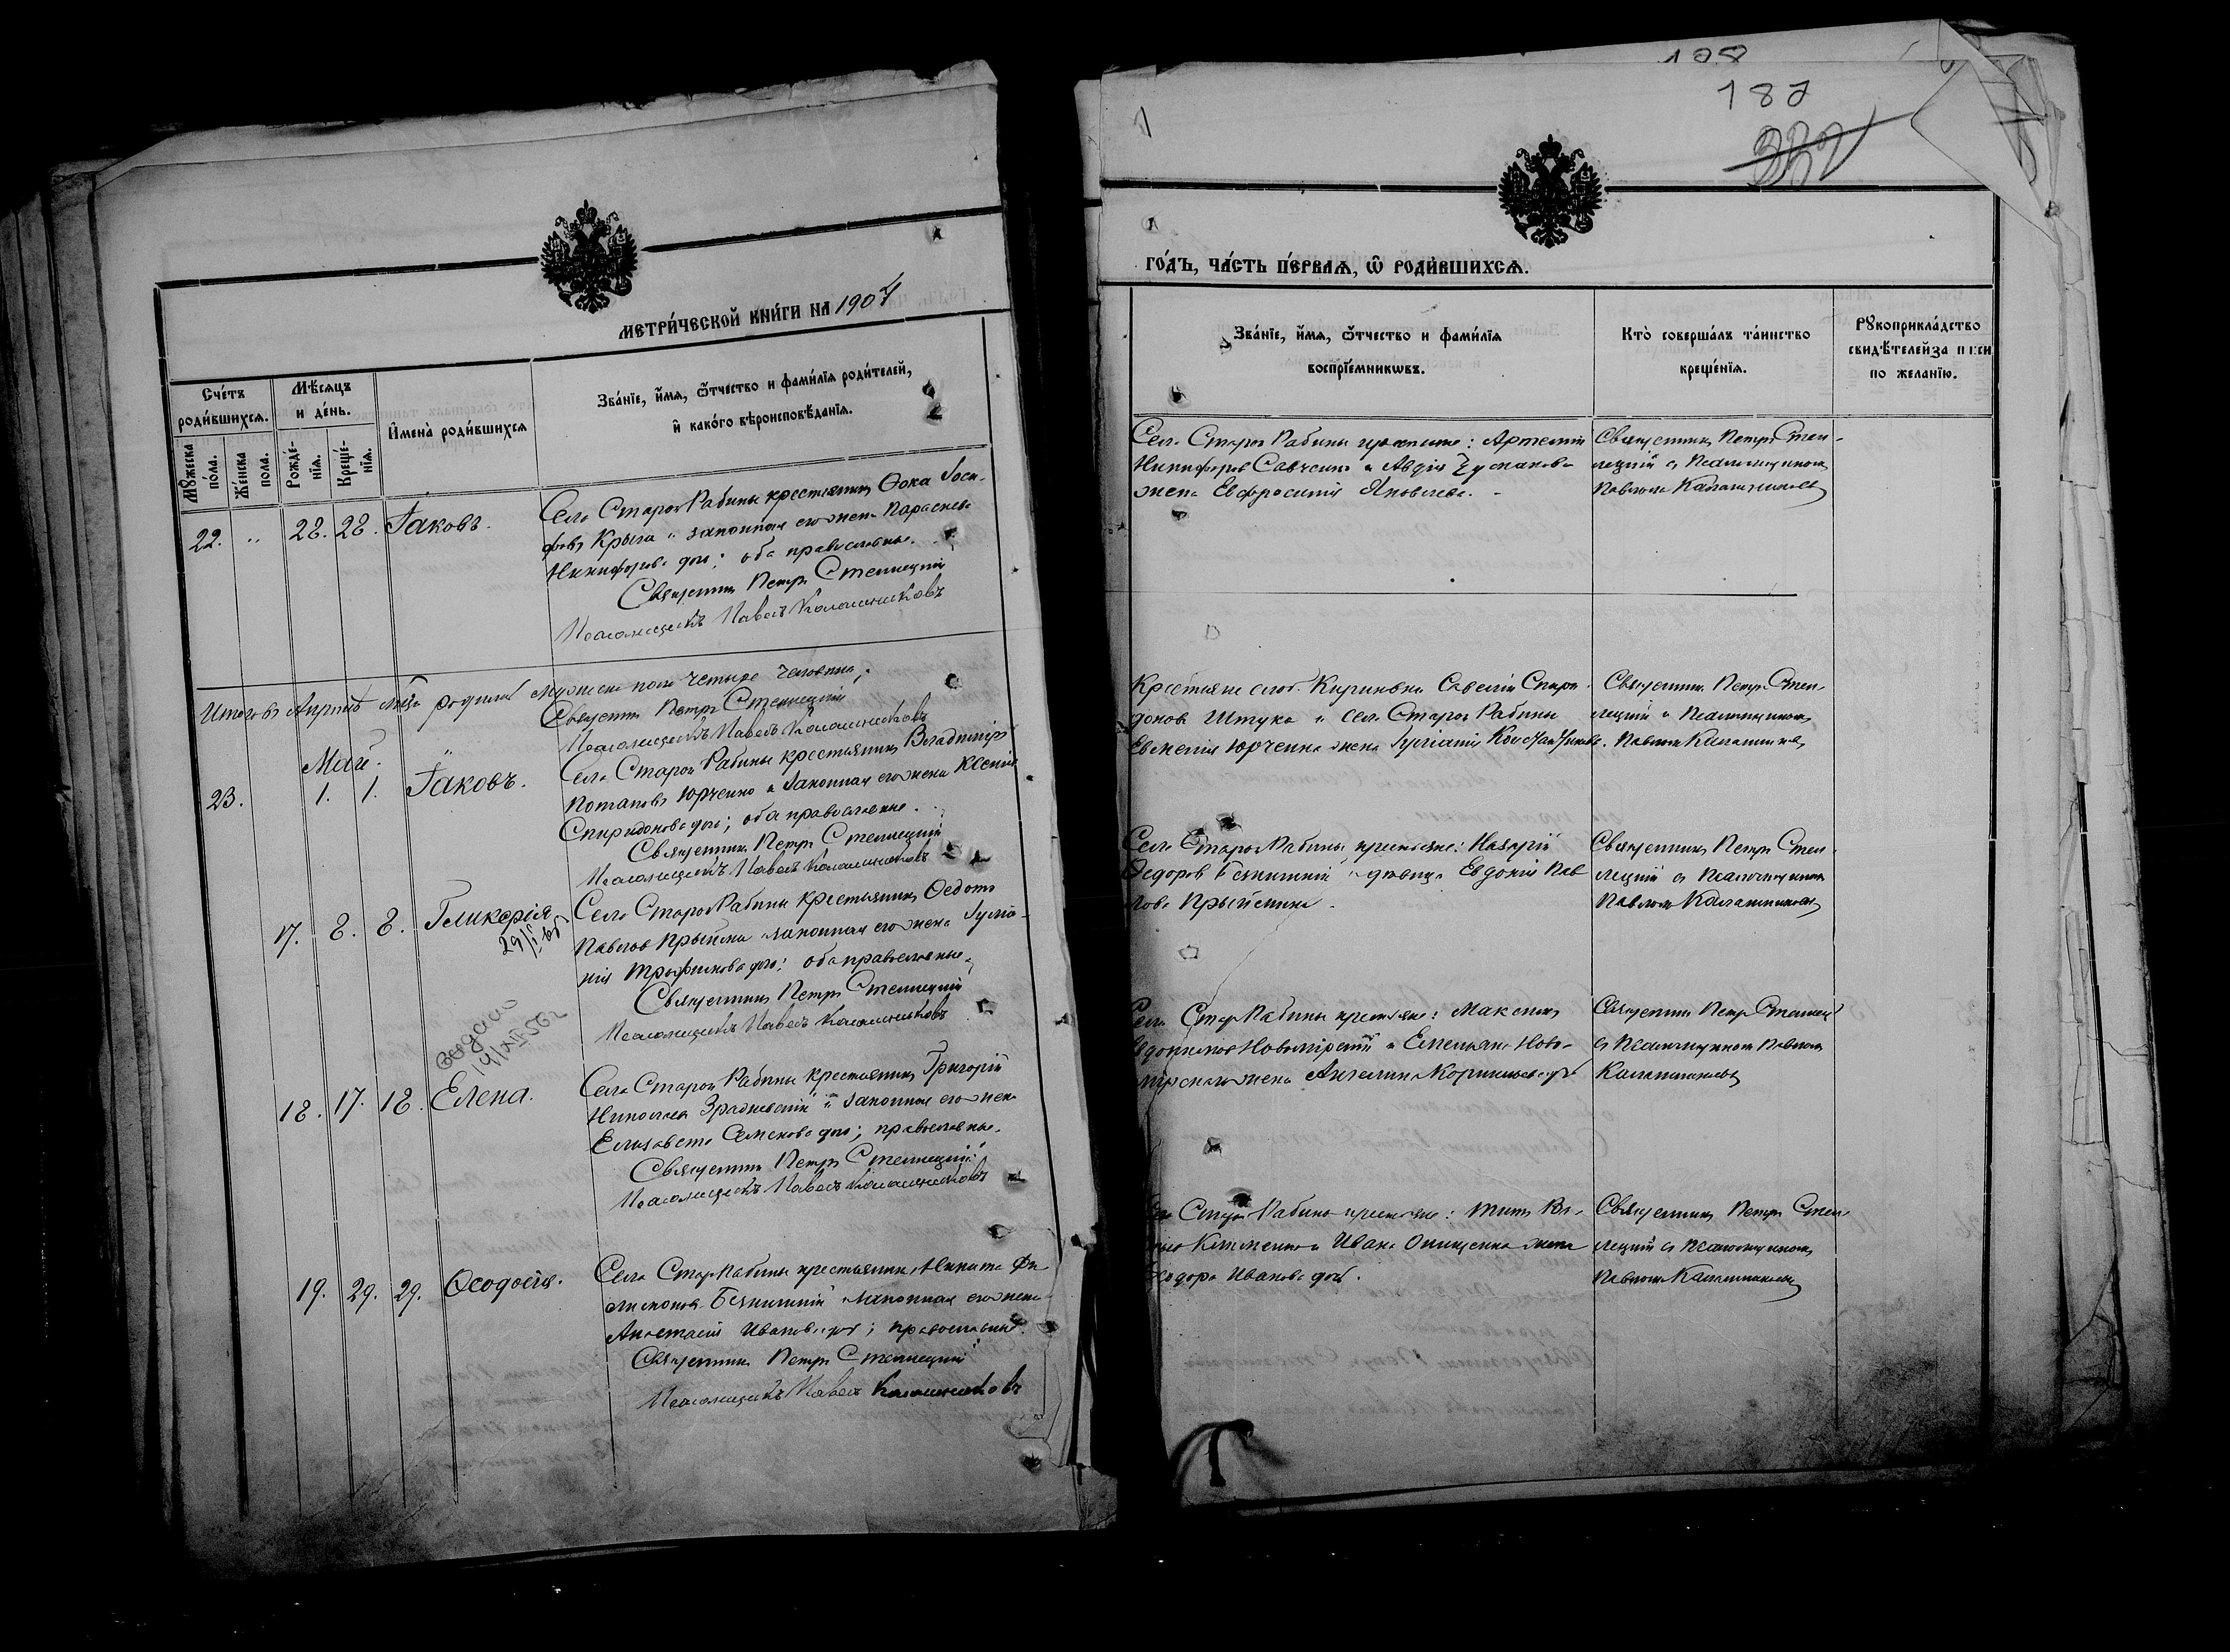 МЕТРИ́ЧЕСКОЙ КНИ́ГИ НА 1907
Сче́тъ роди́вшихся.
Мѣ́сяцъ и де́нь.
Имена̀ роди́вшихся
Зва́нїе, и́мя, ѻ҆́тчество и фами́лїя роди́телей,
и како́го вѣроисповѣ́данїя.
Мꙋ́жеска по́ла.
Же́нска пола.
Рожде́-нїя.
Креще́-нїя.
22. „ 28. 28. Іаковъ.
Села Старой Рабины крестьянинъ Ѳока Іоси-
фовъ Крыга и законная его жена Параскева
Никифорова дочь; оба православные.
Священникъ Петръ Стеллецкій
Псаломщикъ Павелъ Калашниковъ
Итого въ Апрѣлѣ м-цѣ родилось мужеска пола четыре человѣка;
Священникъ Петръ Стеллецкій
Псаломщикъ Павелъ Калашниковъ
Май.
23. 1. 1. Іаковъ.
Села Старой Рабины крестьянинъ Владиміръ
Потаповъ Юрченко и законная его жена Ксенія
Спиридонова дочь; оба православные.
Священникъ Петръ Стеллецкій
Псаломщикъ Павелъ Калашниковъ
17. 8. 8. Гликерія
Села Старой Рабины крестьянинъ Ѳедотъ
Павловъ и законная его жена Іуліа-
нія Трофимова дочь; оба православные.
Священникъ Петръ Стеллецкій
Псаломщикъ Павелъ Калашниковъ
18. 17. 18. Елена.
Села Старой Рабины крестьянинъ Григорій
Николаевъ и законная его жена
Елизавета Семенова дочь; православные.
Священникъ Петръ Стеллецкій
Псаломщикъ Павелъ Калашниковъ
19. 29. 29. Ѳеодосія.
Села Стар. Рабины крестьянинъ Никита Фи-
лимоновъ и законная его жена
Анастасія Иванова дочь; православные.
Священникъ Петръ Стеллецкій
Псаломщикъ Павелъ Калашниковъ
187
ГО́ДЪ, ЧА́СТЬ ПЕ́РВАЯ, Ѽ РОДИ́ВШИХСЯ.
Зва́нїе, и́мя, ѻ҆́тчество и фами́лїя
воспрїе́мникѡвъ.
Кто̀ соверша́лъ та́инство
креще́нїя.
Рꙋкоприкла́дство
свидѣ́телей за
по желанїю.
Села Старой Рабины крестьяне: Артемій
Никифоровъ Савченко и Авдія
жена Евфросинія Яковлева.
Священникъ Петръ Стел-
лецкій съ Псаломщикомъ
Павломъ Калашниковымъ
Крестьяне слоб. Кириковки Савелій Спири-
доновъ Штука и села Старой Рабины
Евменія Юрченка жена Іуліанія
Священникъ Петръ Стел-
лецкій и Псаломщикомъ
Павломъ Калашников
Села Старой Рабины крестьяне: Назарій
Ѳедоровъ и дѣвица Евдокія Пав-
лова
Священникъ Петръ Стел-
лецкій съ Псаломщикомъ
Павломъ Калашниковымъ
Села Стар Рабины крестьяне: Максимъ
Новомірскій и Емельяна Ново-
мірскаго жена Ангелина
Священникъ Петръ Стеллецкій
съ Псаломщикомъ Павломъ
Калашниковымъ
Старой Рабины крестьяне: Титъ
Клименко и Ивана Онищенка жена
Ѳеодора Иванова доч.
Священникъ Петръ Стел-
лецкій съ Псаломщикомъ
Павломъ Калашниковымъ